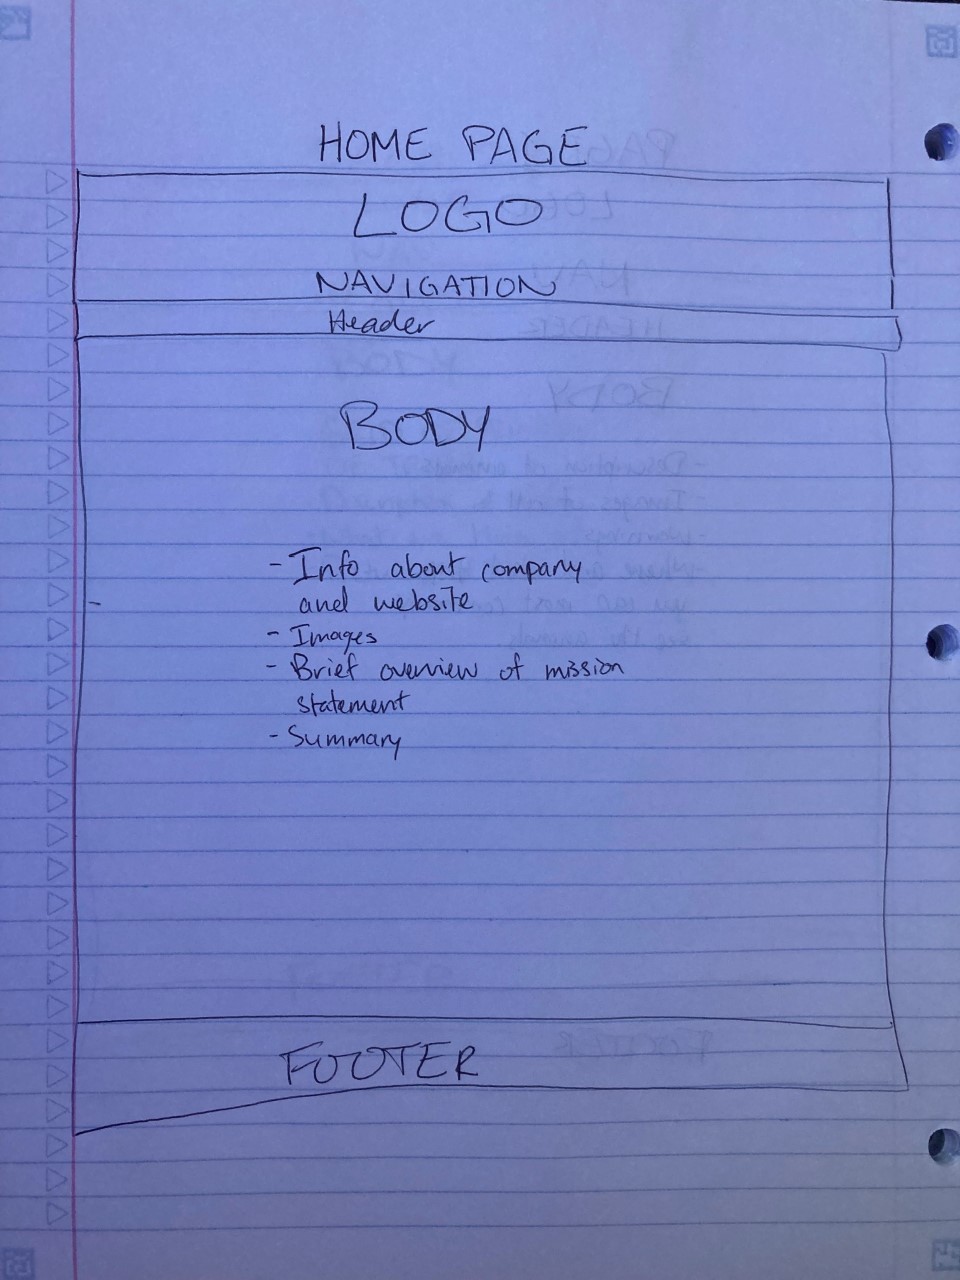 HOME PAGE
LOGO
NAVIGATION
Header
BODY
- Info about company
and website
- Images
- Brief overview of mission
statement
- Summary
FOOTER